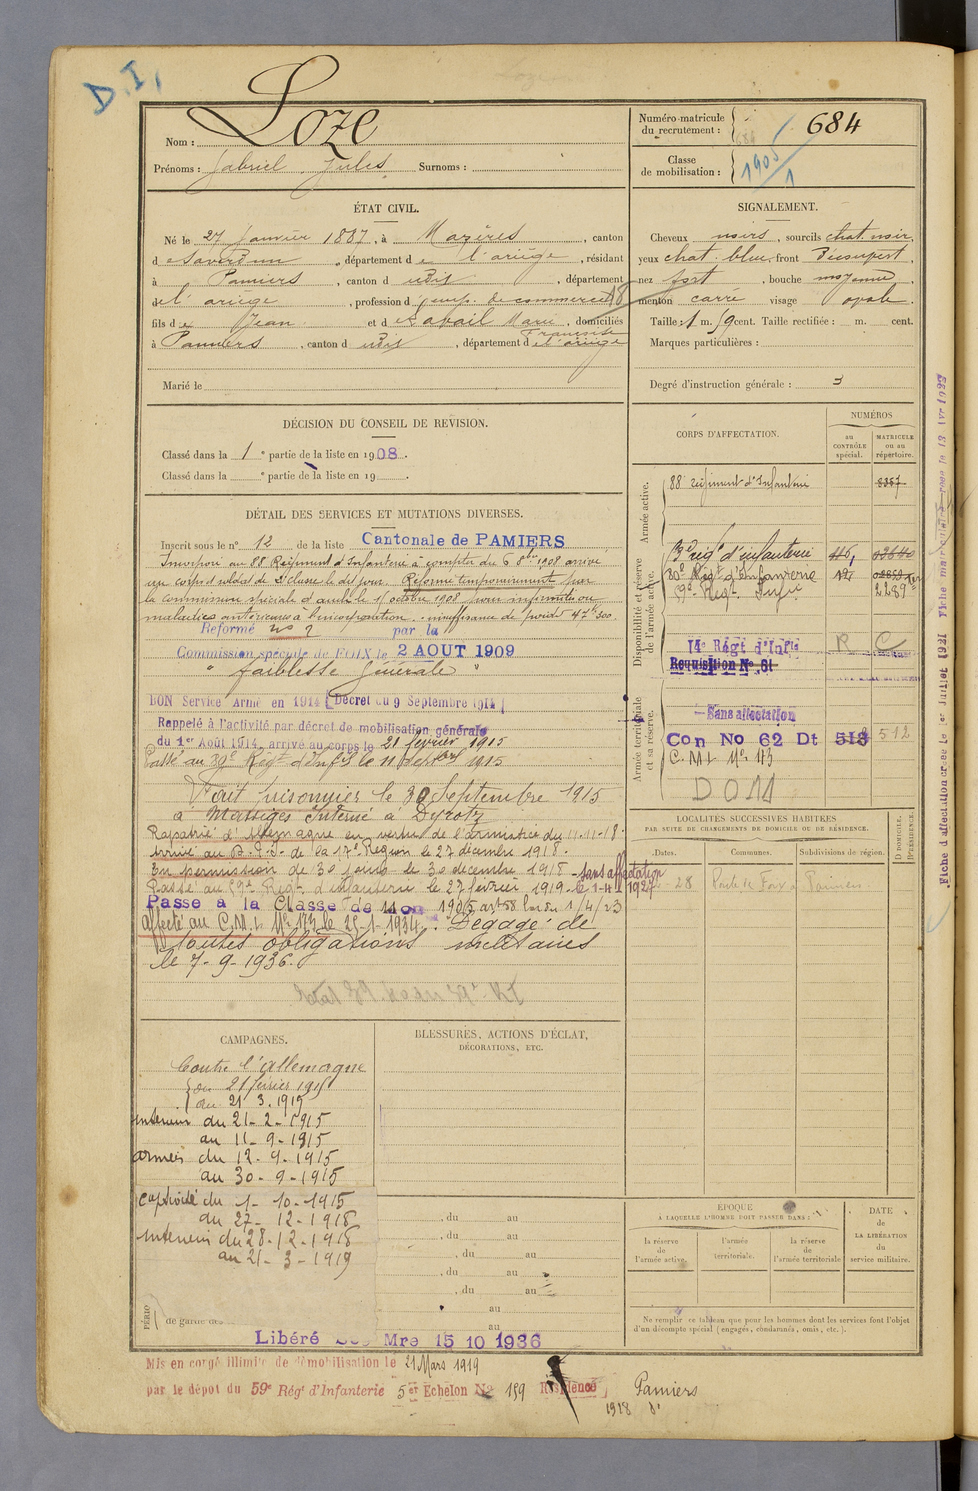 D.I.
Nom : Loze
Prénoms : Gabriel Jules Surnoms :
Numéro matricule du recrutement : 684
Classe de mobilisation : 1905/1
ÉTAT CIVIL.
Né le 27 janvier 1887, à Mazères, canton
de Saverdun, département de l'ariège, résidant
à Pamiers, canton du dit, département
de l'ariège, profession d
fils de Jean et de Marie Françoise, domiciliés
à Pamiers, canton du dit, département de l'ariège
Marié le
SIGNALEMENT.
Cheveux noirs, sourcils chat. noir,
yeux chat. bleu, front Découvert,
nez fort, bouche moyenne,
menton carré visage ovale.
Taille : 1 m. 59 cent. Taille rectifiée : m. cent.
Marques particulières :
Degré d'instruction générale : 3
DÉCISION DU CONSEIL DE REVISION.
Classé dans la 1e partie de la liste en 1908.
Classé dans la e partie de la liste en 19 .
DÉTAIL DES SERVICES ET MUTATIONS DIVERSES.
Inscrit sous le n° 12 de la liste Cantonale de PAMIERS
Incorporé au 88 Régiment d'Infanterie à compter du 6 8bre 1908 arrivé
au corps et soldat de 2e classe le dit jour. Réformé temporairement par
la commission spéciale d' le octobre 1908 pour infirmités ou
maladies antérieures à l'incorporation. insuffisance de poids 47k500.
Reformé n° 2 par la
Commission spéciale de FOIX le 2 AOUT 1909
" faiblesse Générale "
BON Service Armé en 1914 [Décret du 9 Septembre 1914]
Rappelé à l'activité par décret de mobilisation générale
du 1er Août 1914, arrivé au corps le 21 février 1915
Passé au Régt d'Inf le 11 septembre 1915
Fait prisonnier le 30 Septembre 1915
à Massiges Interné à Dyrotz
Rapatrié d'Allemagne en vertu de l'armistice du 11-11-18.
Arrivé au de la 17e Région le 27 décembre 1918.
En permission de 30 jours le 30 décembre 1918 - sans affectation
Passé au 59e Régt d'infanterie le 27 février 1919 - le 1-4-1927
Passe à la Classe de 1905 art 58 loi du 1/4/23
affecté au C.M.I. N° 173 le 25-1-1934. Dégagé de
toutes obligations militaires
le 7-9-1936.
CORPS D'AFFECTATION.
NUMÉROS
au CONTRÔLE spécial.
MATRICULE ou au répertoire.
Armée active.
88 régiment d'Infanterie 8357
Disponibilité et réserve de l'armée active.
régt d'infanterie
Régt d'Infanterie
59e Régt. Infie 2289
14e Régt d'Infie R C
Requisition No 61
Armée territoriale et sa réserve.
Sans affectation
Con No 62 Dt 513 512
C.M.I. N° 173
LOCALITÉS SUCCESSIVES HABITÉES
PAR SUITE DE CHANGEMENTS DE DOMICILE OU DE RÉSIDENCE.
Dates. Communes. Subdivisions de région. D DOMICILE. R RÉSIDENCE.
28 Route de Foix à Pamiers
Fiche d'affectation créée le 1er Juillet 1931 Fiche matricule
CAMPAGNES.
Contre l'allemagne
du 21 février 1915
au 21 3. 1919
intérieur du 21-2-1915
au 11-9-1915
armées du 12-9-1915
au 30-9-1915
captivité du 1-10-1915
au 27-12-1918
intérieur du 28-12-1918
au 21-3-1919
BLESSURES, ACTIONS D'ÉCLAT,
DÉCORATIONS, ETC.
, du au
, du au
, du au
, du au
, du au
au
au
ÉPOQUE
À LAQUELLE L'HOMME DOIT PASSER DANS :
la réserve de l'armée active.
l'armée territoriale.
la réserve de l'armée territoriale
DATE de LA LIBÉRATION du service militaire.
Ne remplir ce tableau que pour les hommes dont les services font l'objet
d'un décompte spécial (engagés, condamnés, omis, etc.).
PÉRIO
de garde
Libéré Mre 15 10 1936
Mis en congé illimité de démobilisation le 21 Mars 1919
par le dépôt du 59e Régt d'Infanterie 5er Echelon No 159 Résidence Pamiers
1928